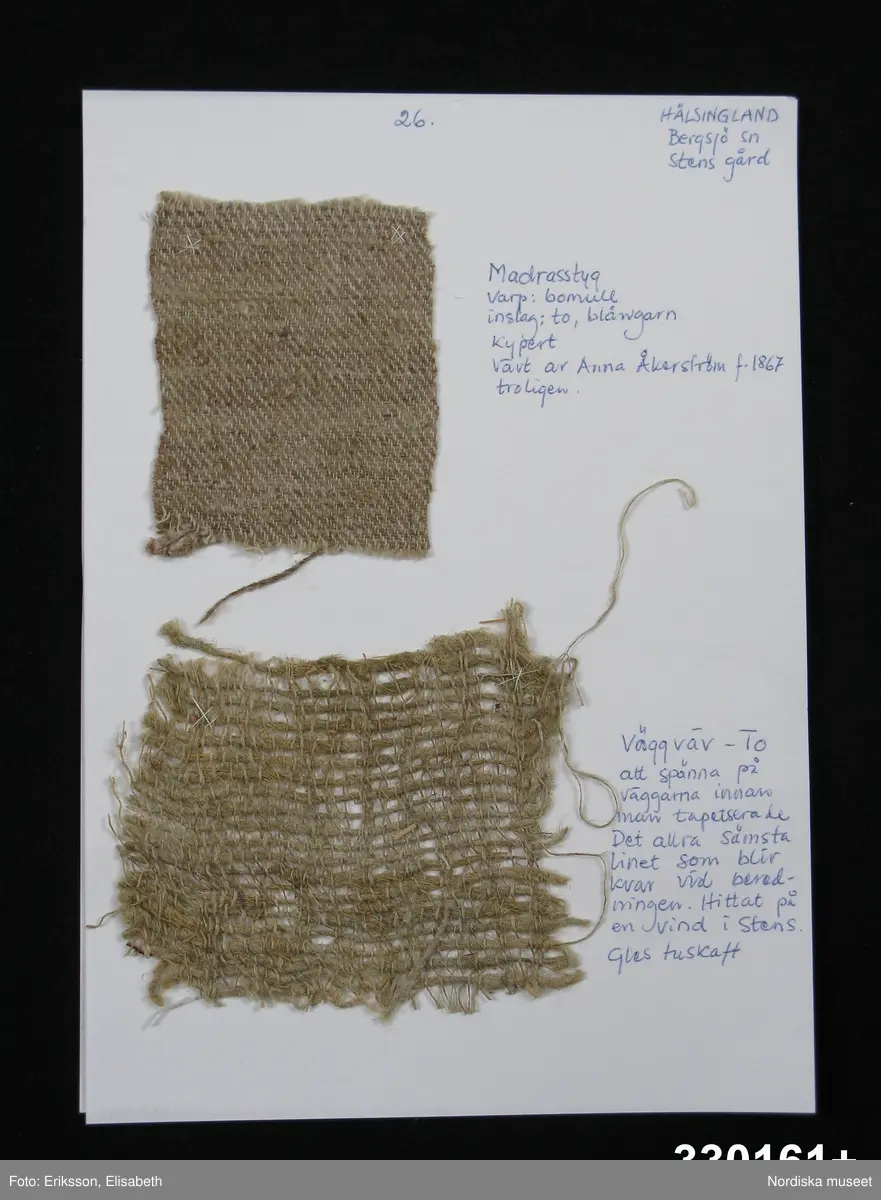 26.
HÄLSINGLAND
Bergsjö sn
Stens gård
Madrasstyg
varp: bomull
inslag: to, blångarn
kypert
Vävt av Anna Åkerström f. 1867
troligen.
Väggväv - To
att spänna på
väggarna innan
man tapetserade
Det allra sämsta
linet som blir
kvar vid bered-
ningen. Hittat på
en vind i Stens.
Gles tuskaft
330161+
Foto: Eriksson, Elisabeth
Nordiska museet